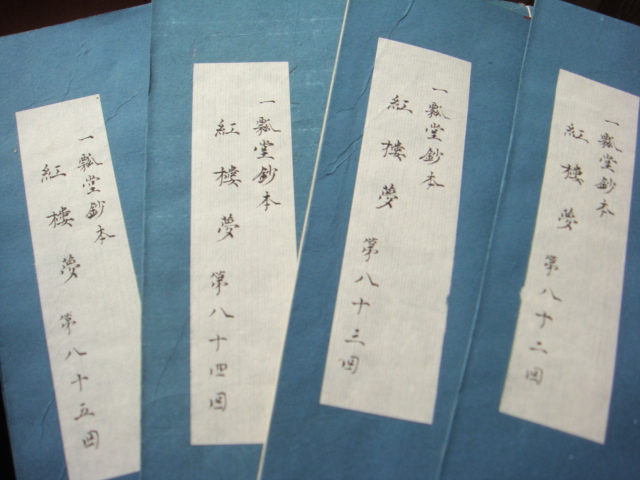 一瓢堂鈔本
紅樓夢 第八十二回
一瓢堂鈔本
紅樓夢 第八十三回
一瓢堂鈔本
紅樓夢 第八十四回
一瓢堂鈔本
紅樓夢 第八十五回